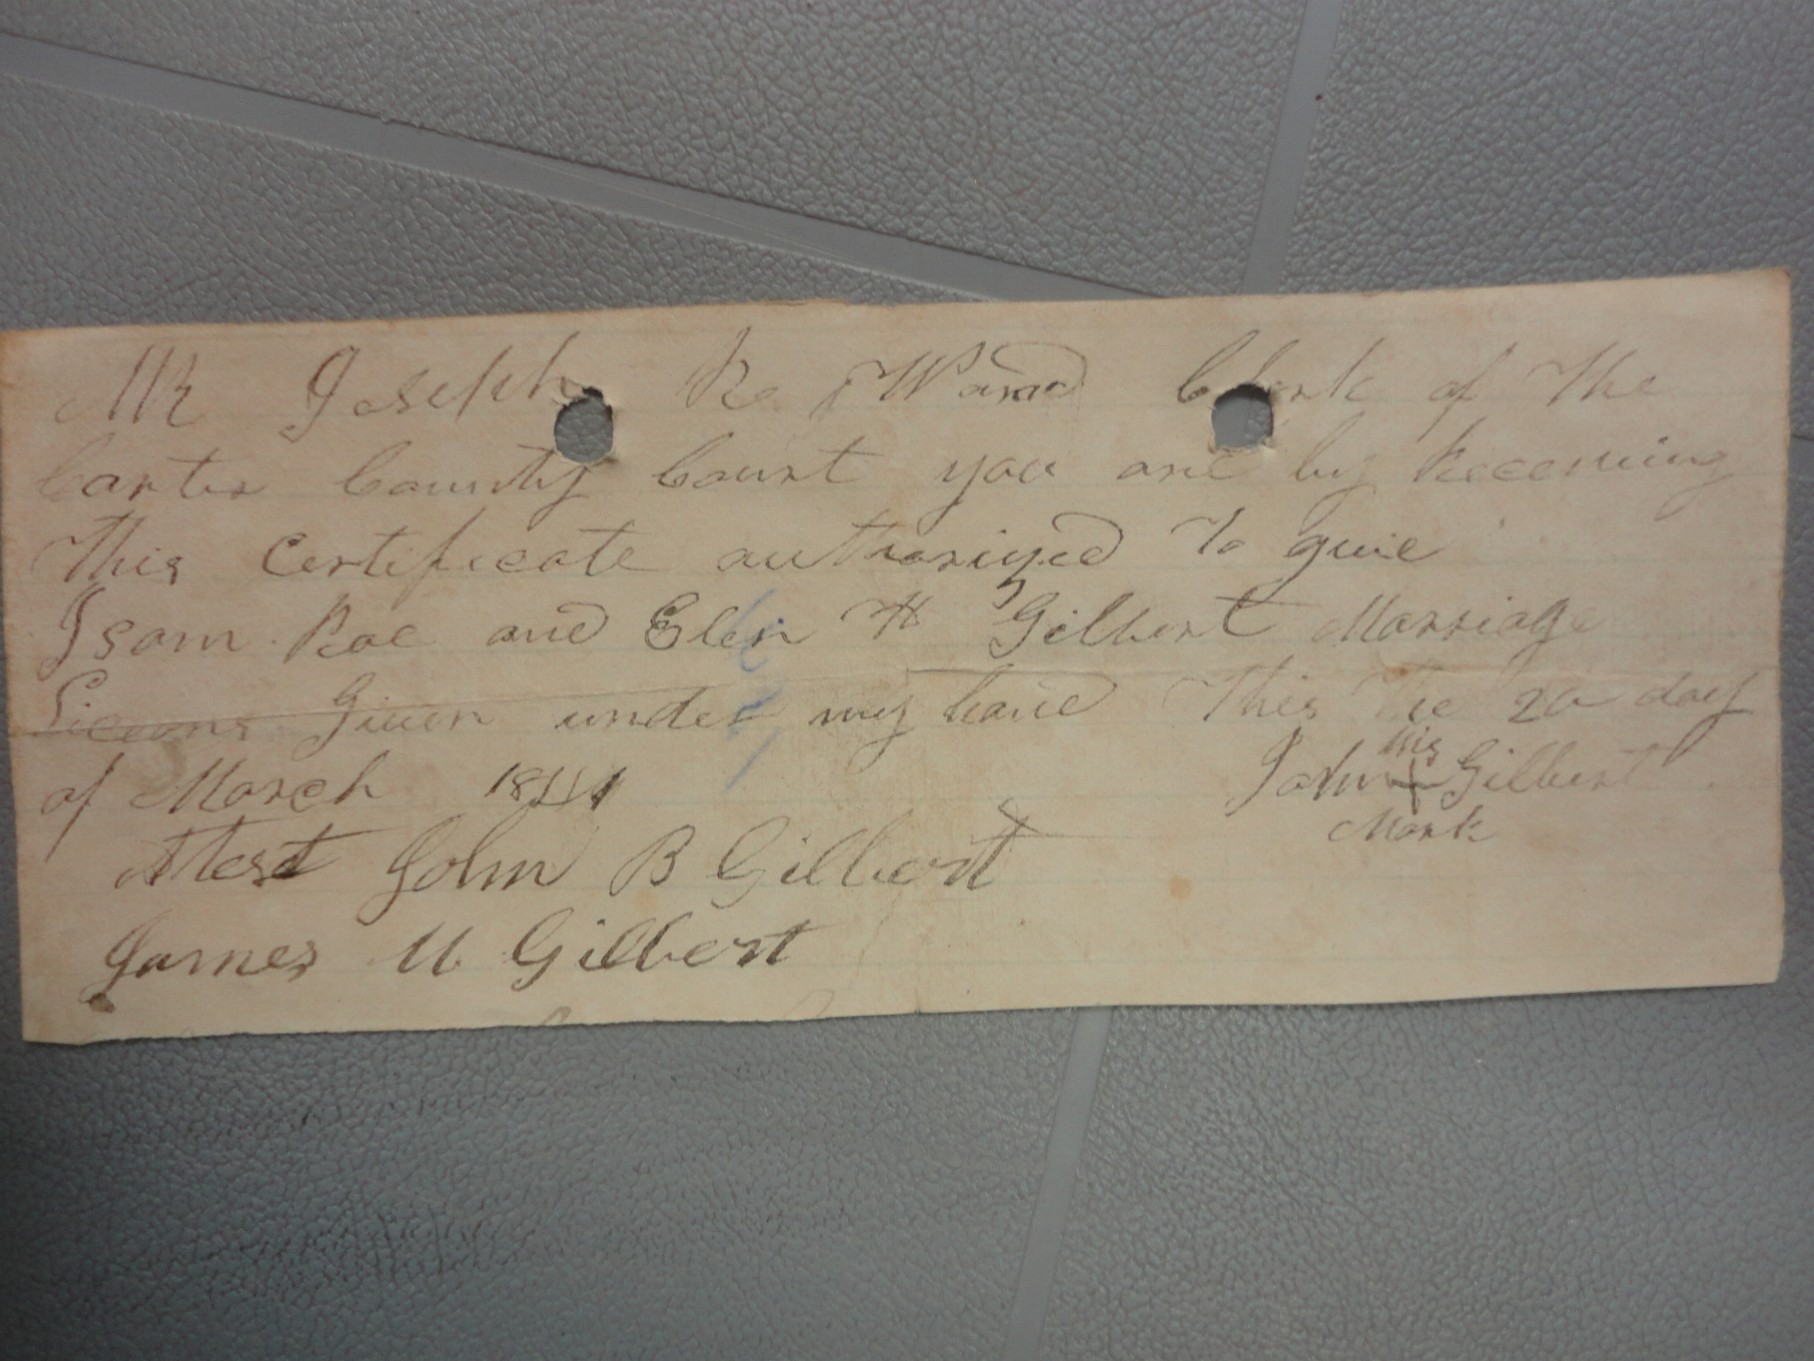 MR Joseph R Ward Clerk of The
Carter County Court you are by Receeving
This Certificate authorized To give
Isom Roe and Elen H Gilbert Marriage
Licens Given under my hand This the 20 day
of March 1841 John his + Gilbert
Mark
Attest John B Gilbert
James M Gilbert